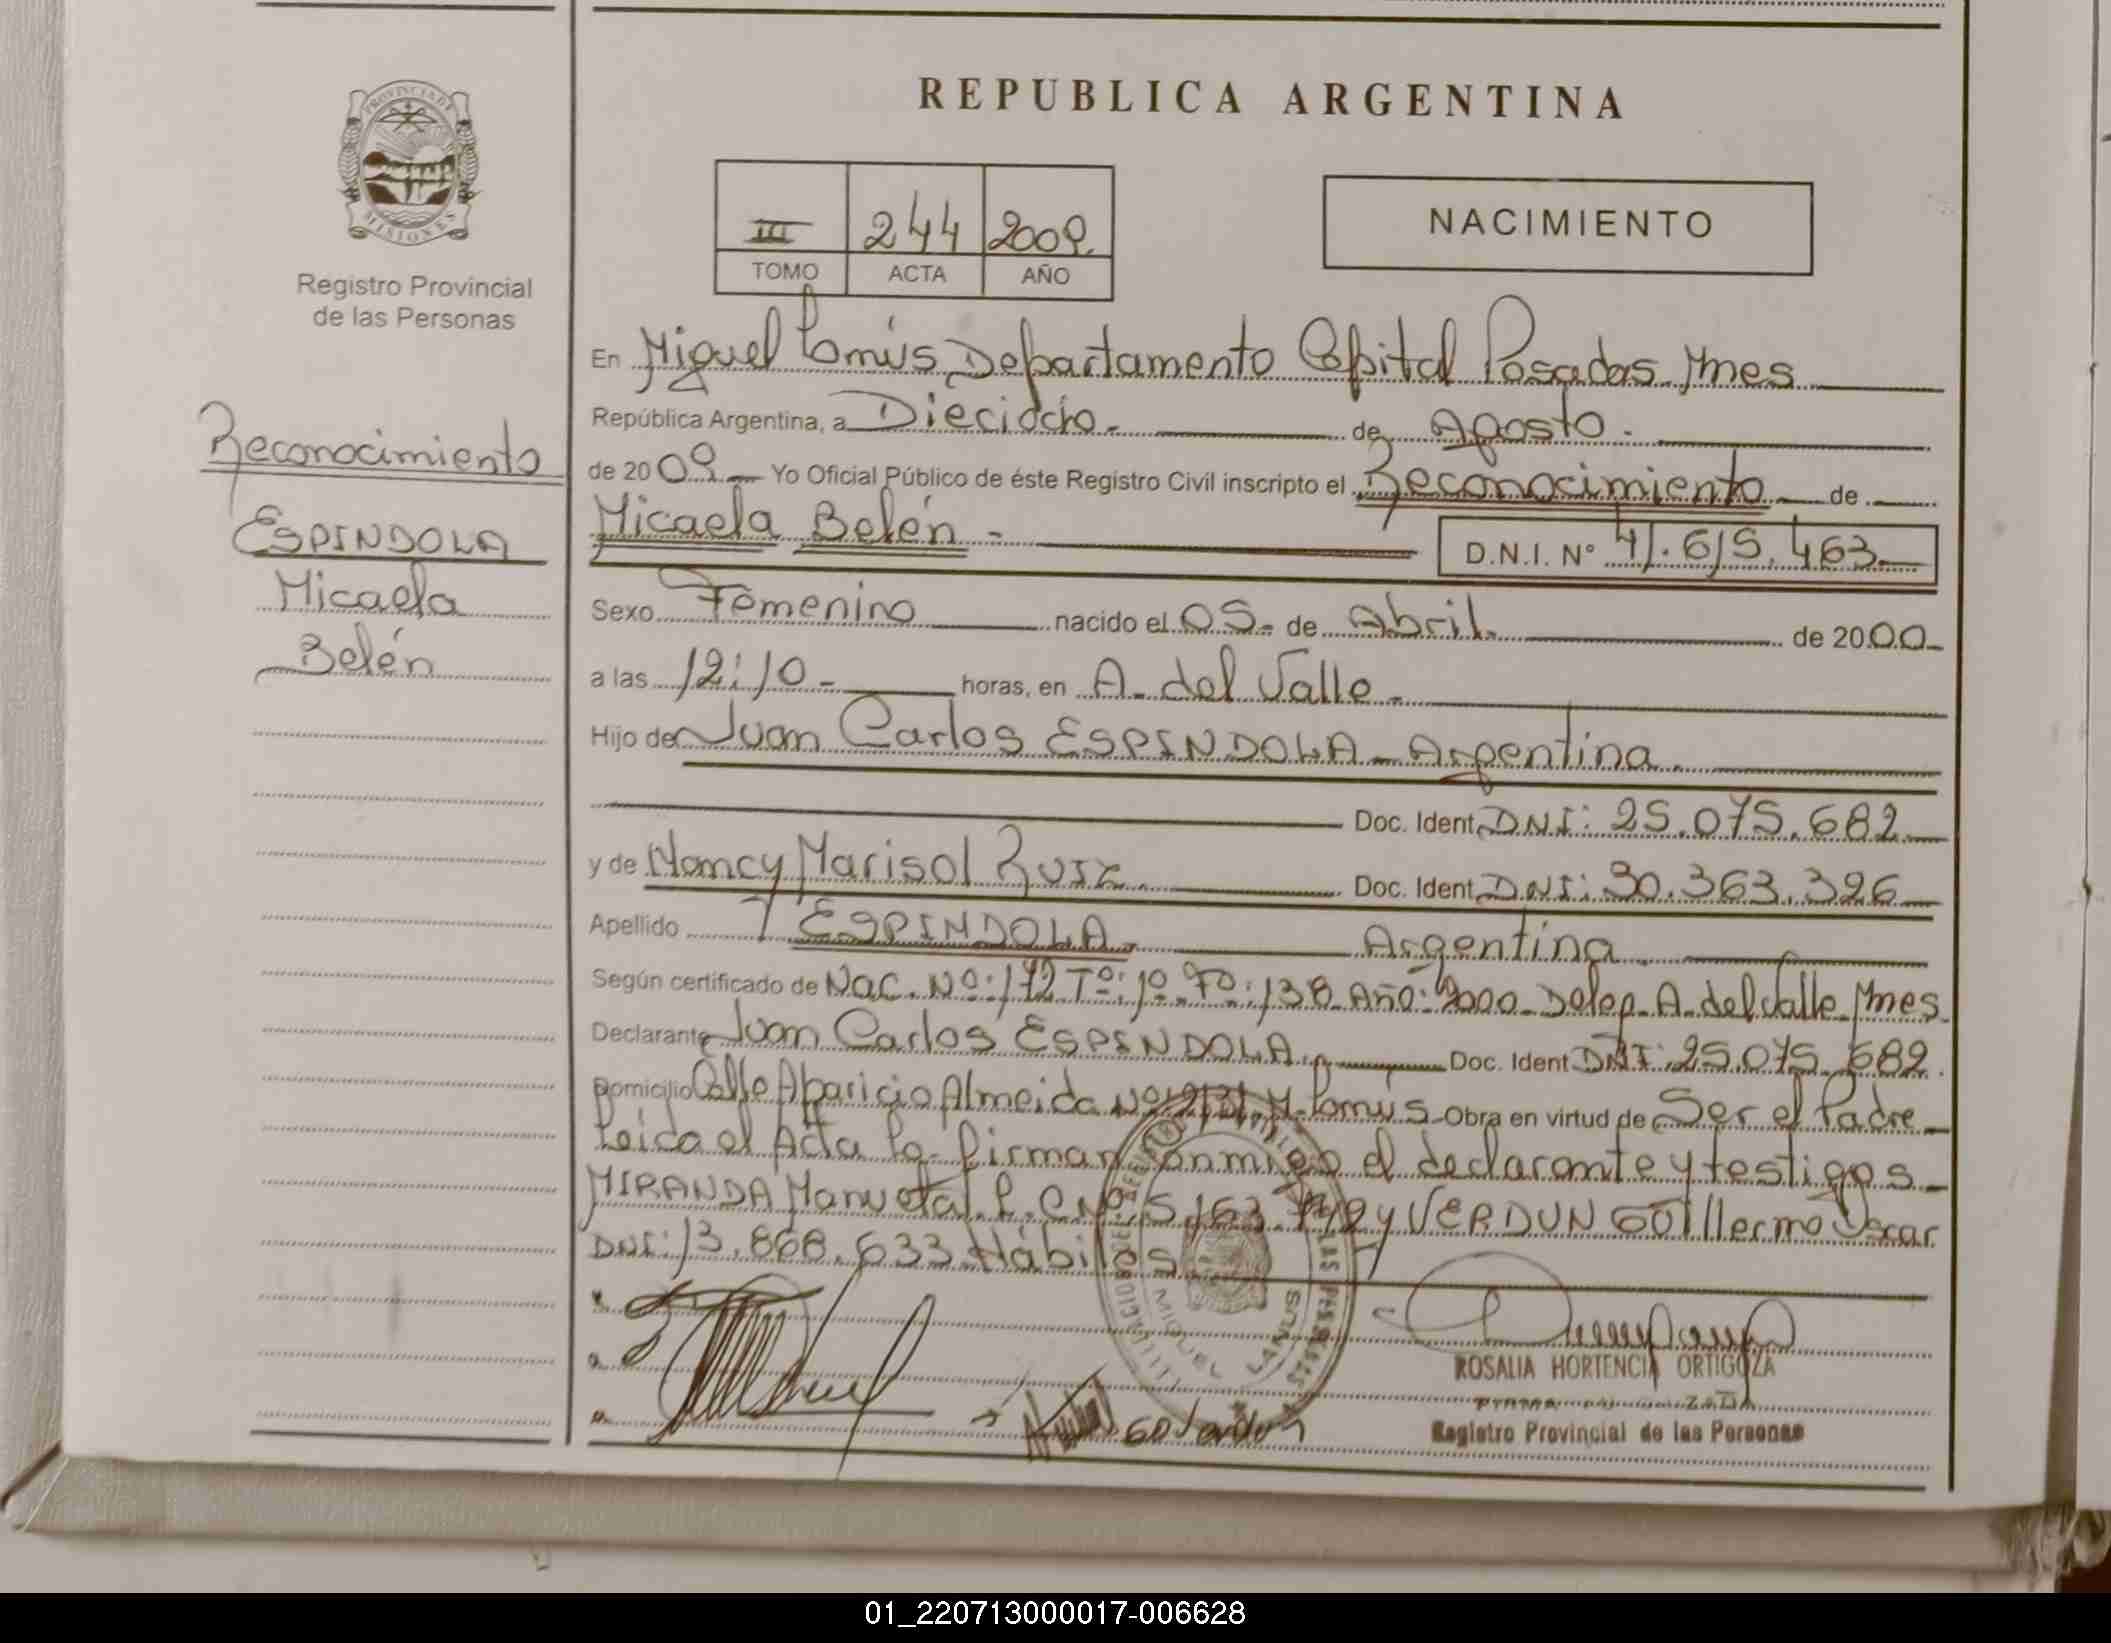 REPUBLICA ARGENTINA
PROVINCIA DE
MISIONES
Registro Provincial
de las Personas
III 244 2009.
TOMO ACTA AÑO
NACIMIENTO
Reconocimiento
ESPINDOLA
Micaela
Belén
En Miguel Lanús Departamento Capital Posadas Mnes
República Argentina, a Dieciocho.- de Agosto.-
de 2009 Yo Oficial Público de éste Registro Civil inscripto el Reconocimiento de
Micaela Belén - D.N.I. N° 41.615.463
Sexo Femenino nacido el 05- de Abril. de 2000-
a las 12:10- horas, en A. del Valle.
Hijo de Juan Carlos ESPINDOLA - Argentina.
Doc. Ident. DNI: 25.075.682
y de Nancy Marisol Ruiz Doc. Ident. DNI: 30.363.326
Apellido ESPINDOLA Argentina.
Según certificado de Nac. Nº: 172 Tº: 1º Fº: 138 Año: 2000 Deleg. A. del Valle Mnes.
Declarante Juan Carlos ESPINDOLA. Doc. Ident. DNI: 25.075.682.
Domicilio Calle Aparicio Almeida Nº M. Lanús Obra en virtud de Ser el Padre
Leida el Acta la firman conmigo el declarante y testigos
MIRANDA Manuela L.C Nº 5.163. y VERDUN Guillermo Oscar
DNI: 13.868.633 Hábiles
MIGUEL LANUS
ROSALIA HORTENCIA ORTIGOZA
Registro Provincial de las Personas
01_220713000017-006628